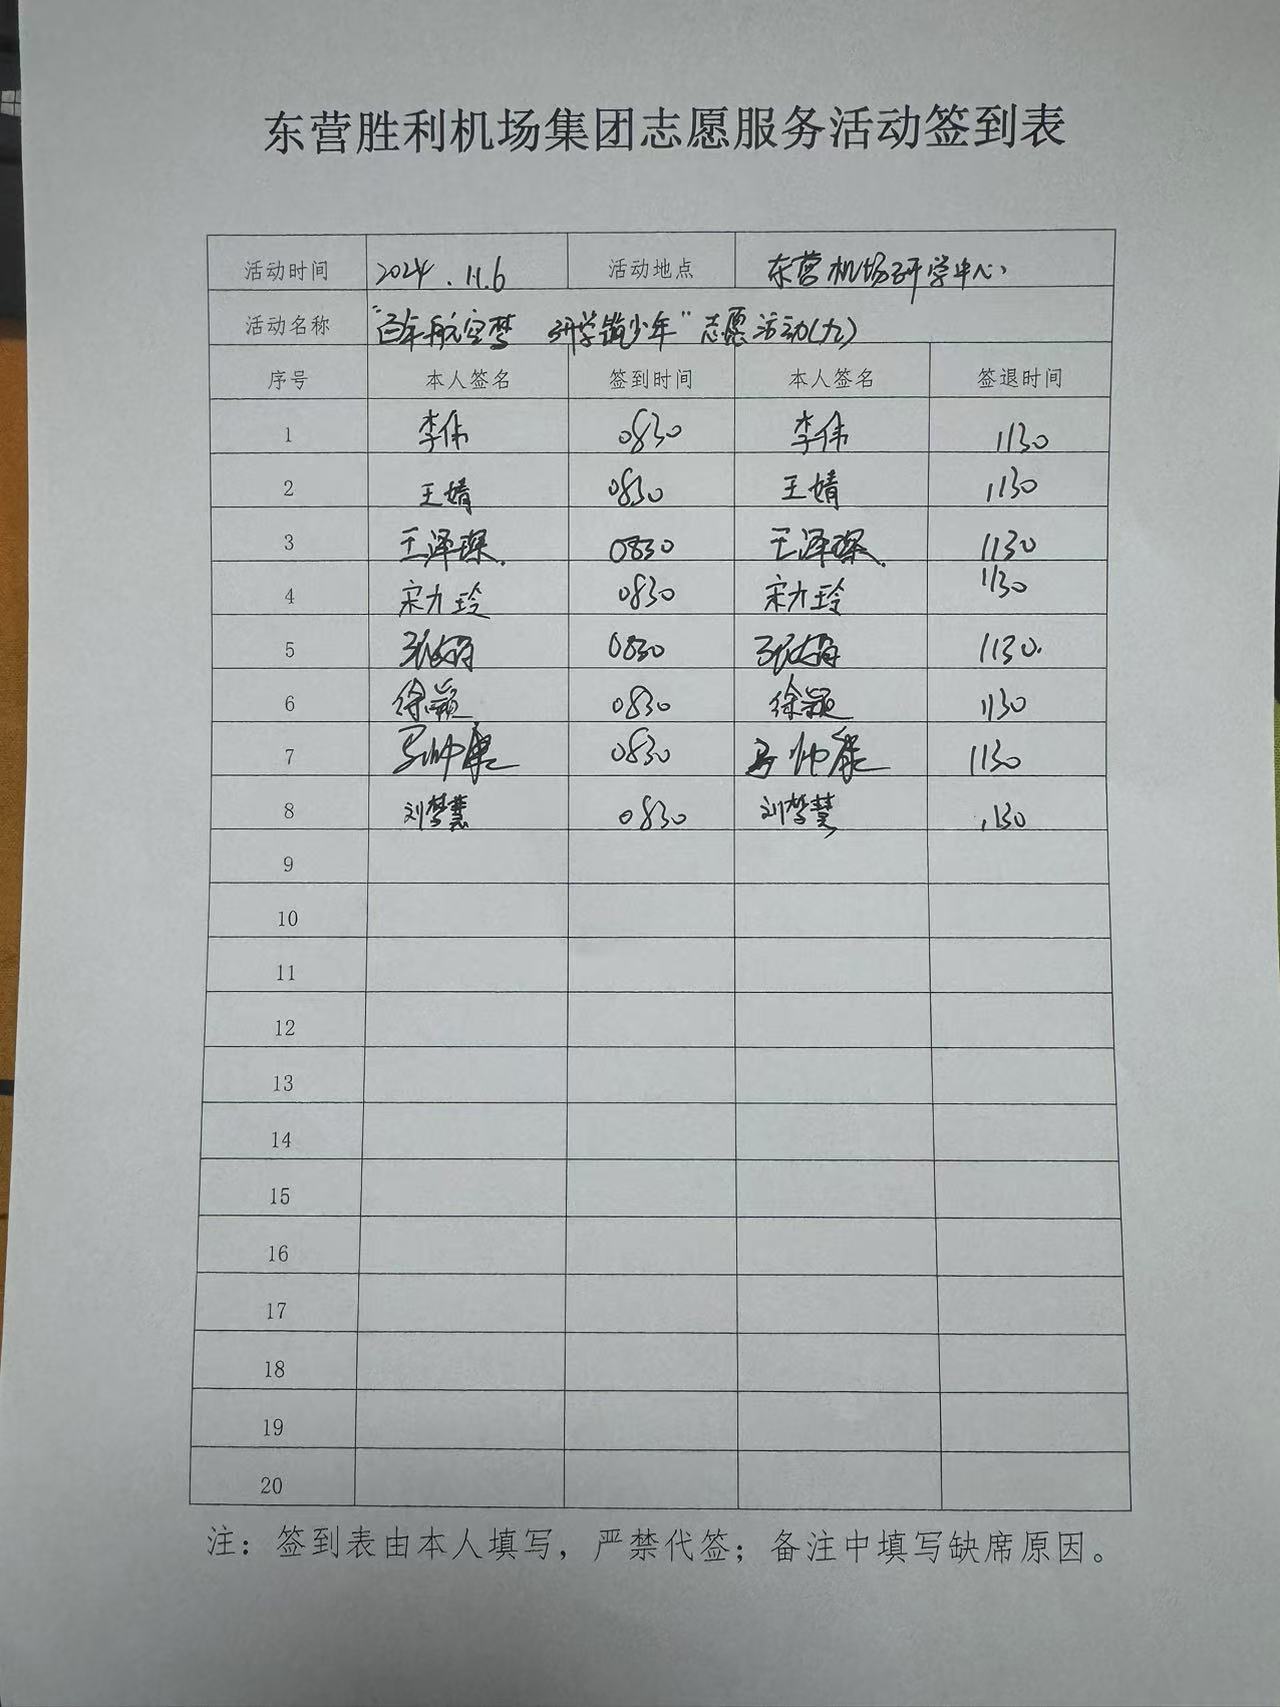 东营胜利机场集团志愿服务活动签到表
活动时间 2024.11.6 活动地点 东营机场研学中心
活动名称 “百年航空梦 研学筑少年”志愿活动(九)
序号 本人签名 签到时间 本人签名 签退时间
1 李伟 0830 李伟 1130
2 王婧 0830 王婧 1130
3 王泽琛 0830 王泽琛 1130
4 宋力玲 0830 宋力玲 1130
5 0830 1130
6 徐颖 0830 徐颖 1130
7 马帅康 0830 马帅康 1130
8 刘梦慧 0830 刘梦慧 1130
9
10
11
12
13
14
15
16
17
18
19
20
注：签到表由本人填写，严禁代签；备注中填写缺席原因。